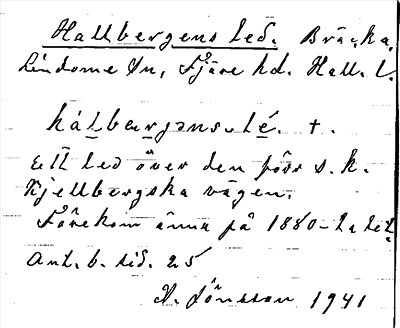 Hallbergens led. Bräcka,
Lindome sn, Fjäre hd. Hall. l.
hálbærjəns le. †.
Ett led över den förr s. k.
Kjellbergska vägen.
Förekom ännu på 1880-talet.
Ant. b. sid. 25
J. Jönsson 1941